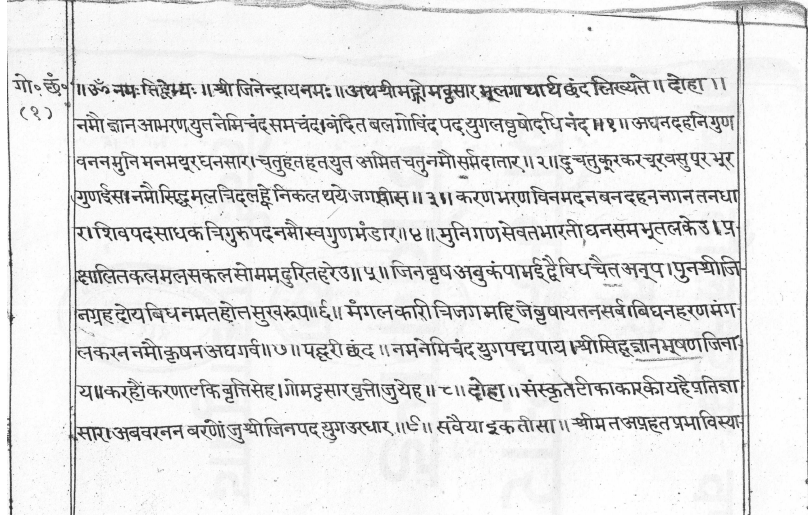 गो॰ छं॰ ॥ ॐ नमः सिद्धेभ्यः ॥ श्री जिनेन्द्राय नमः ॥ अथ श्रीमद्गोमट्टसार मूलगाथार्थ छंद लिख्यते ॥ दोहा ॥
(१) नमौ ज्ञान आभरण युत नेमिचंद सम चंद। बंदित बल गोविंद पद युगल वृषोदधि नंद ॥१॥ अघ नद हनि गुण
वनन मुनि मन मयूर घनसार। चतु हत हत युत अमित चतु नमौ सर्मदातार ॥२॥ दु चतु कूर कर चूर वसु पर भूर
गुण ईस। नमौ सिद्ध मल चिद लहे निकल थये जगसीस ॥३॥ करण भरण विन मदन बन दहन नगन तन धा
रा। शिवपद साधक चि गुरु पद नमौ स्वगुण भंडार ॥४॥ मुनि गण सेवत भारती घन सम भूतल केउ। प्र-
क्षालित कलमल सकल सो मम दुरित हरेउ ॥५॥ जिन वृष अबुकंपा मई द्वै विध चैत अनूप। पुन श्री जि-
न ग्रह दोय बिध नमत होत सुख रूप ॥६॥ मंगलकारी चि जग महि जे वृषायतन सर्व। बिघन हरण मंग-
ल करन नमौ कृषन अघ गर्व ॥७॥ पद्धरी छंद ॥ नम नेमिचंद युग पद्म पाय। श्री सिद्ध ज्ञानभूषण जिना-
य॥ करहौं करणाटकि वृत्ति सेह। गोमट्टसार वृत्ती जु येह ॥८॥ दोहा ॥ संस्कृत टीकाकार की यहै प्रतिज्ञा
सार। अब वरनन बरणों जु श्री जिन पद युग उर धार ॥९॥ सवैया इकतीसा ॥ श्रीमत अप्रहत प्रभावि स्या-